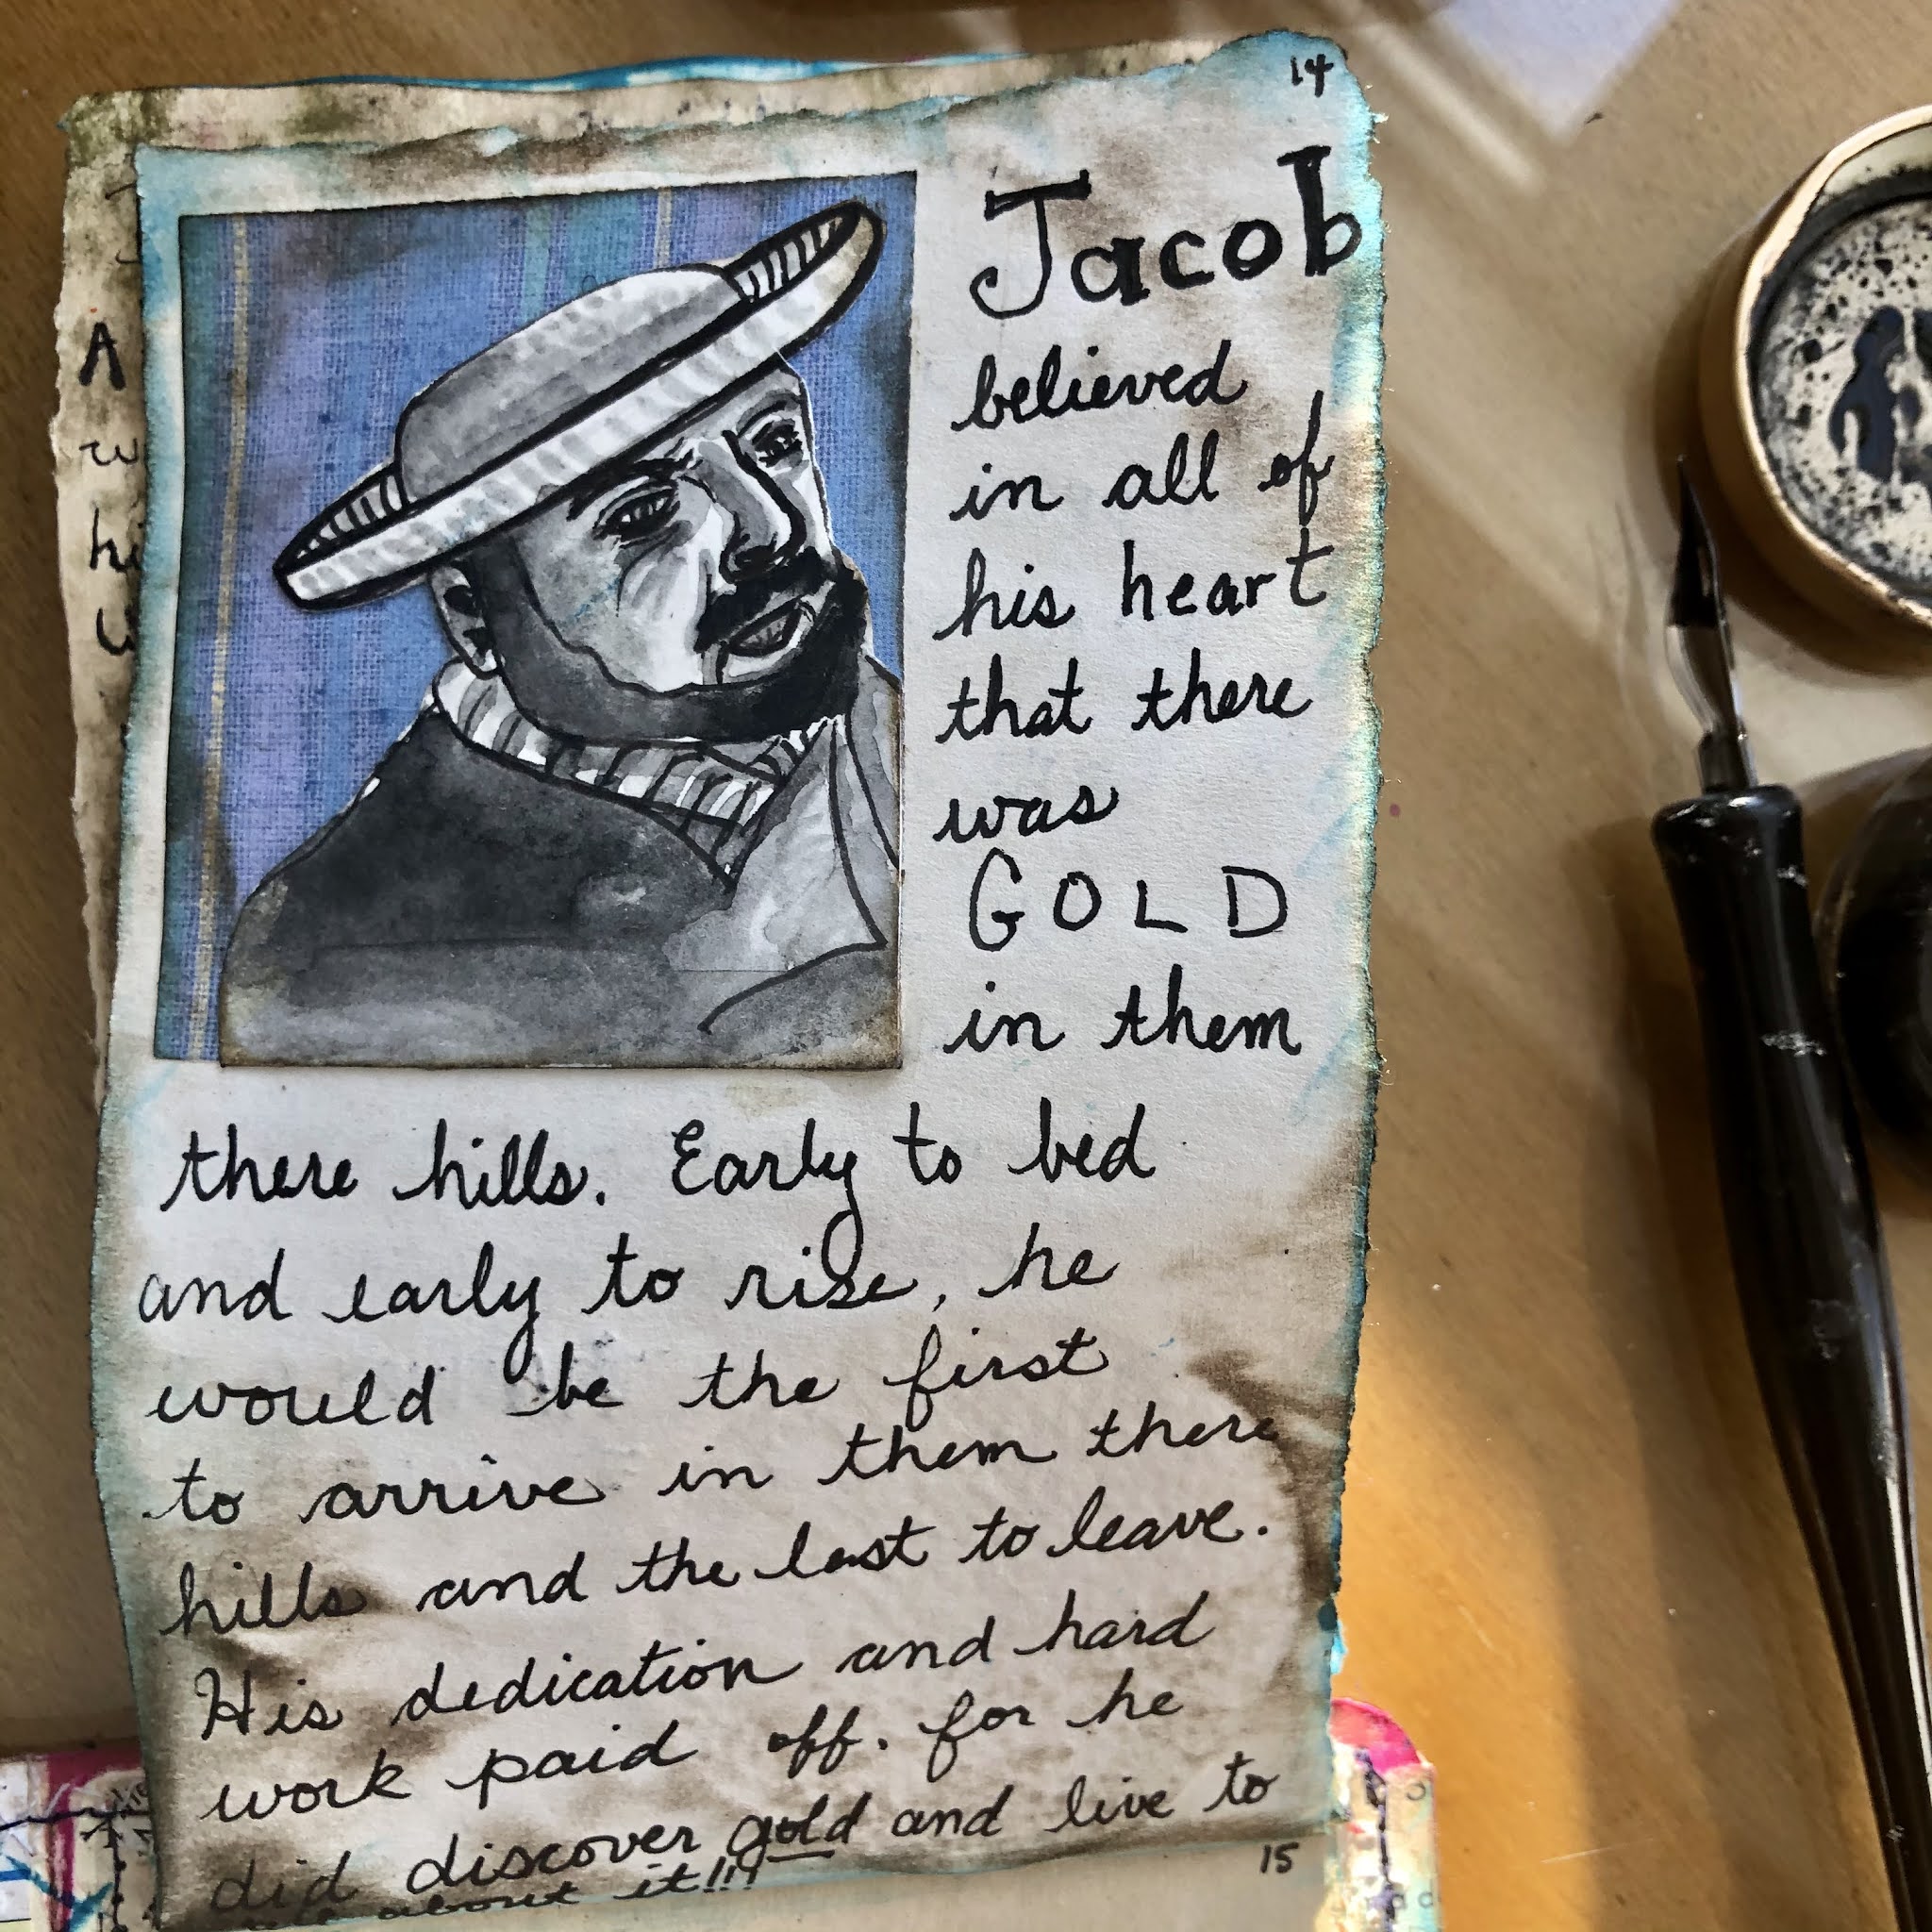 14
Jacob
believed
in all of
his heart
that there
was
GOLD
in them
there hills. Early to bed
and early to rise, he
would be the first
to arrive in them there
hills and the last to leave.
His dedication and hard
work paid off. for he
did discover gold and live to
about it!!!
15
A
w
hi